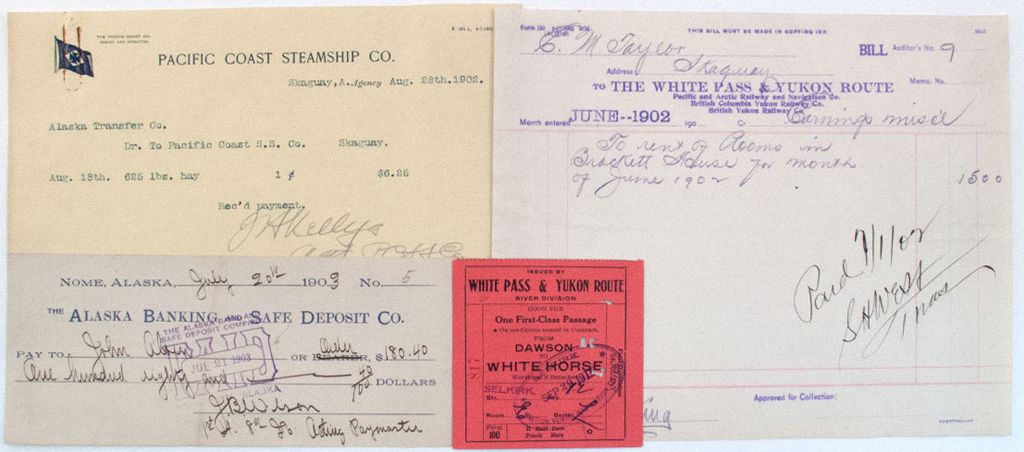 THE PACIFIC COAST CO.
PACIFIC COAST STEAMSHIP CO.
Skaguay, A. Agency Aug. 28th. 1902.
Alaska Transfer Co.
Dr. To Pacific Coast S.S. Co. Skaguay.
Aug. 18th. 625 lbs. hay 1 ¢ $6.25
Rec'd payment.
THIS BILL MUST BE MADE IN COPYING INK
C. M Taylor BILL Auditor's No. 9
Address Skaguay Memo. No.
TO THE WHITE PASS & YUKON ROUTE
Pacific and Arctic Railway and Navigation Co.
British Columbia Yukon Railway Co.
British Yukon Railway Co.
Month entered JUNE--1902 190 Earnings misc'l
To rent of Rooms in
Brackett House for month
of June 1902 1500
Paid 7/1/02
S H West
Approved for Collection:
NOME, ALASKA, July 20th 1903 No. 5
THE ALASKA BANKING AND SAFE DEPOSIT CO.
THE ALASKA BANKING AND
SAFE DEPOSIT COMPANY
PAID
JUL 21 1903
ALASKA
PAY TO John OR BEARER, Order $180.40
One hundred eighty and 40/100 DOLLARS
J B Wilson
1st Lt. 8th Acting Paymaster
ISSUED BY
WHITE PASS & YUKON ROUTE
RIVER DIVISION
GOOD FOR
One First-Class Passage
On conditions named in Contract.
FROM
DAWSON
TO
WHITE HORSE
Worthless if Detached
SELKIRK
Str.
Room Berth
Form 100
If Half Fare
Punch Here
817
SEP 2